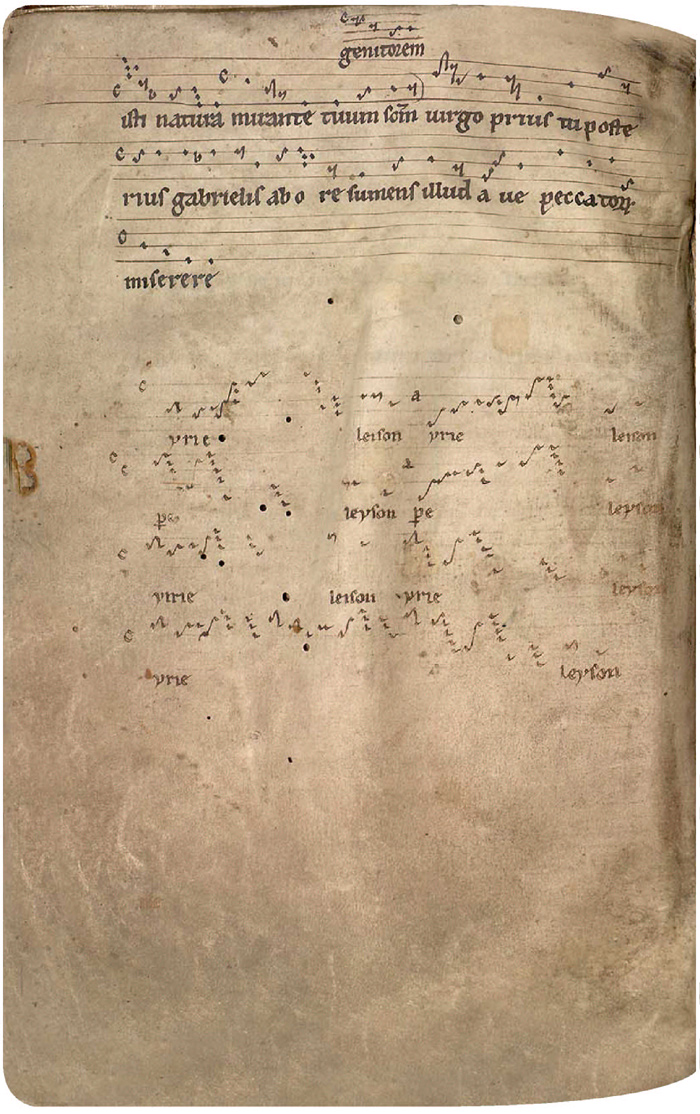 genitorem
isti natura mirante tuum scm̄ uirgo prius tu poste
rius gabrielis ab o re sumens illud a ue peccatorꝝ
miserere
yrie leison yrie leison
leyson pe leyson
yrie leison yrie leyson
yrie leyson